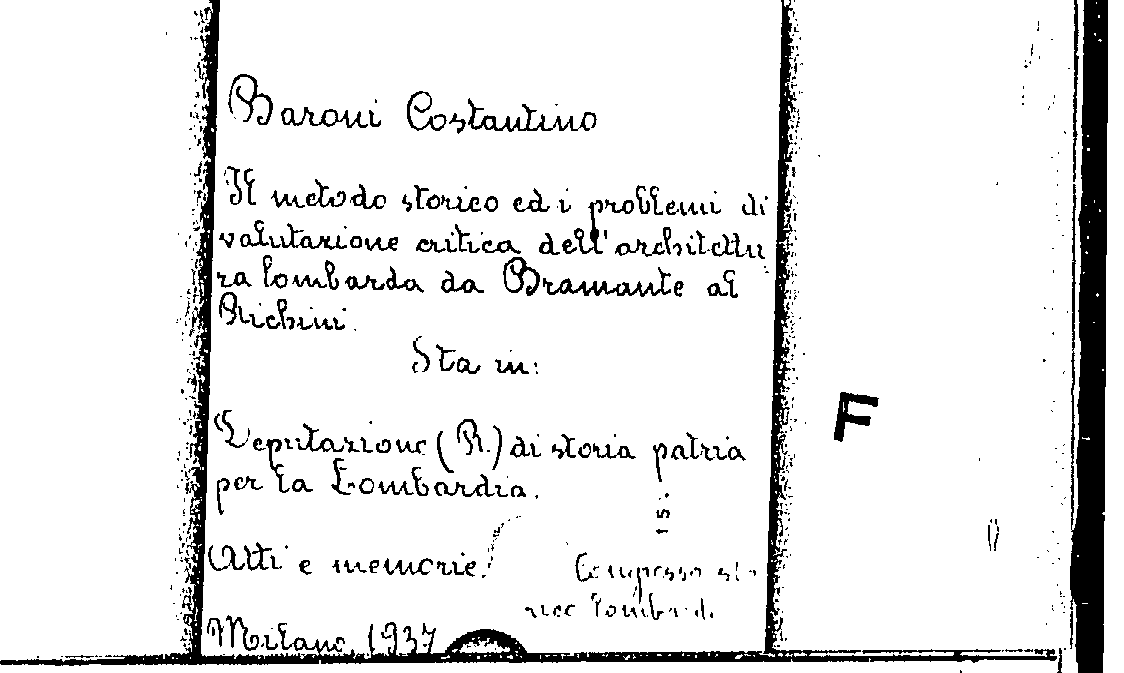 Baroni Costantino
Il metodo storico ed i problemi di
valutazione critica dell'architettu
ra lombarda da Bramante al
Richini.
Sta in:
Deputazione (R.) di storia patria
per la Lombardia.
15.
Atti e memorie.
Congresso sto
rico lombard.
Milano, 1937
F